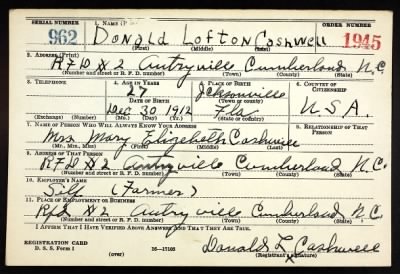 SERIAL NUMBER 1. NAME (Print) ORDER NUMBER
962 Donald Lofton Cashwell 1945
(First) (Middle) (Last)
2. ADDRESS (Print)
RFD #2 Autryville Cumberland N.C.
(Number and street or R. F. D. number) (Town) (County) (State)
3. TELEPHONE 4. AGE IN YEARS 5. PLACE OF BIRTH 6. COUNTRY OF CITIZENSHIP
27 Jcksonville
DATE OF BIRTH (Town or county)
Dec 30 1912 Fla U.S.A.
(Exchange) (Number) (Mo.) (Day) (Yr.) (State or country)
7. NAME OF PERSON WHO WILL ALWAYS KNOW YOUR ADDRESS 8. RELATIONSHIP OF THAT PERSON
Mrs Mary Elizebath Cashwell
(Mr., Mrs., Miss) (First) (Middle) (Last)
9. ADDRESS OF THAT PERSON
RFD #2 Autryville Cumberland N.C.
(Number and street or R. F. D. number) (Town) (County) (State)
10. EMPLOYER'S NAME
(Farmer)
11. PLACE OF EMPLOYMENT OR BUSINESS
#2 Autryville Cumberland N.C.
(Number and street or R. F. D. number) (Town) (County) (State)
I AFFIRM THAT I HAVE VERIFIED ABOVE ANSWERS AND THAT THEY ARE TRUE.
REGISTRATION CARD
D. S. S. Form 1 16—17105 Donald L Cashwell
(Registrant's signature)